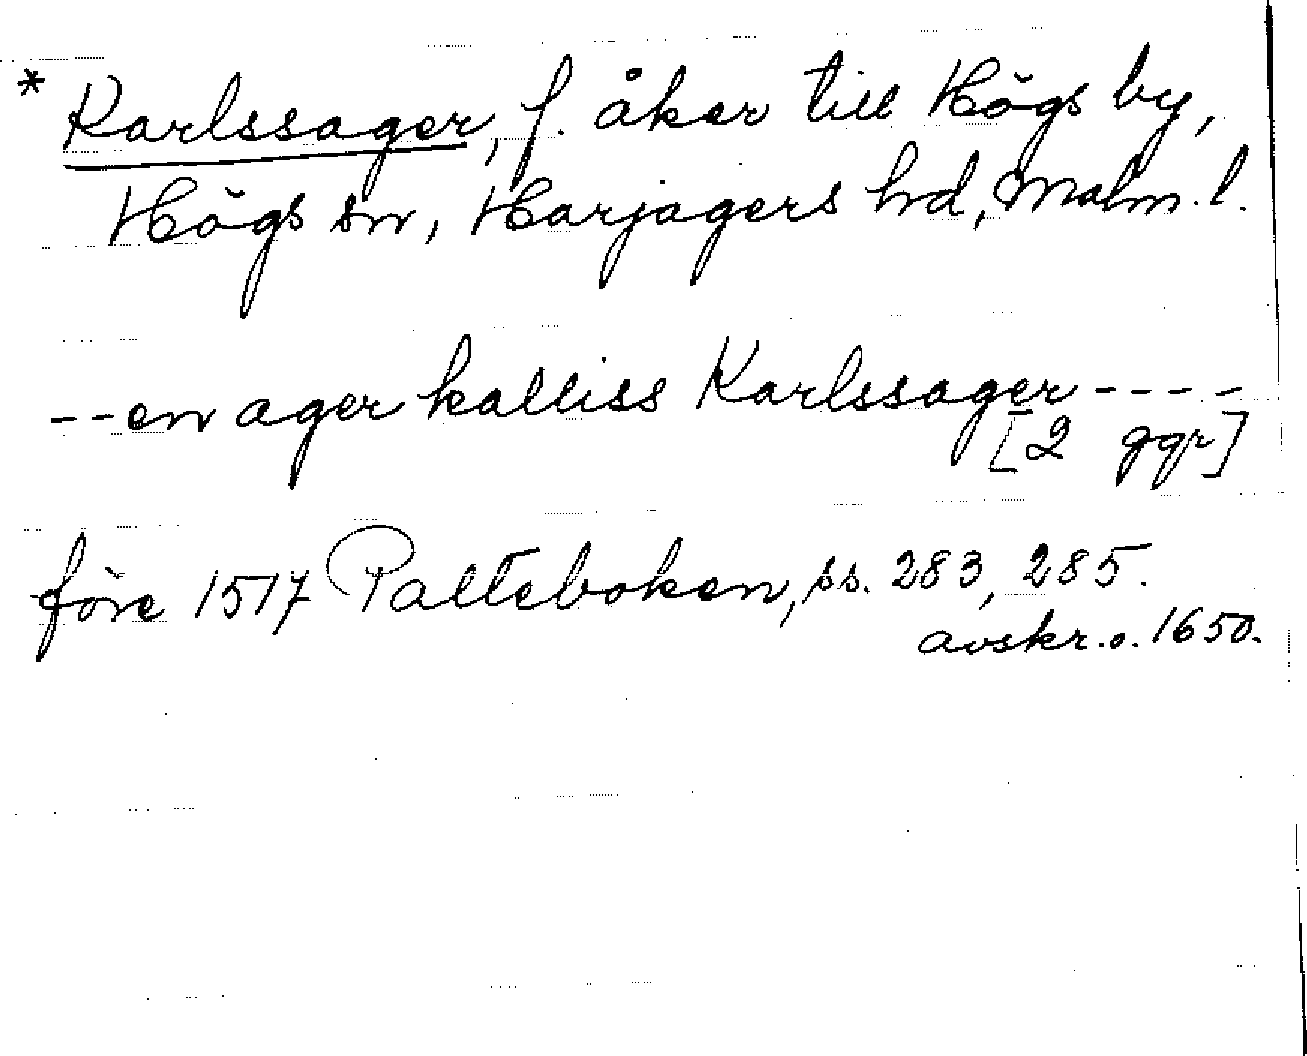 * Karlssager, f. åker till Högs by,
Högs sn, Harjagers hd, Malm. l.
-- en ager kalliss Karlssager ----
[2 ggr]
före 1517 Palteboken, ss. 283, 285.
avskr. o. 1650.